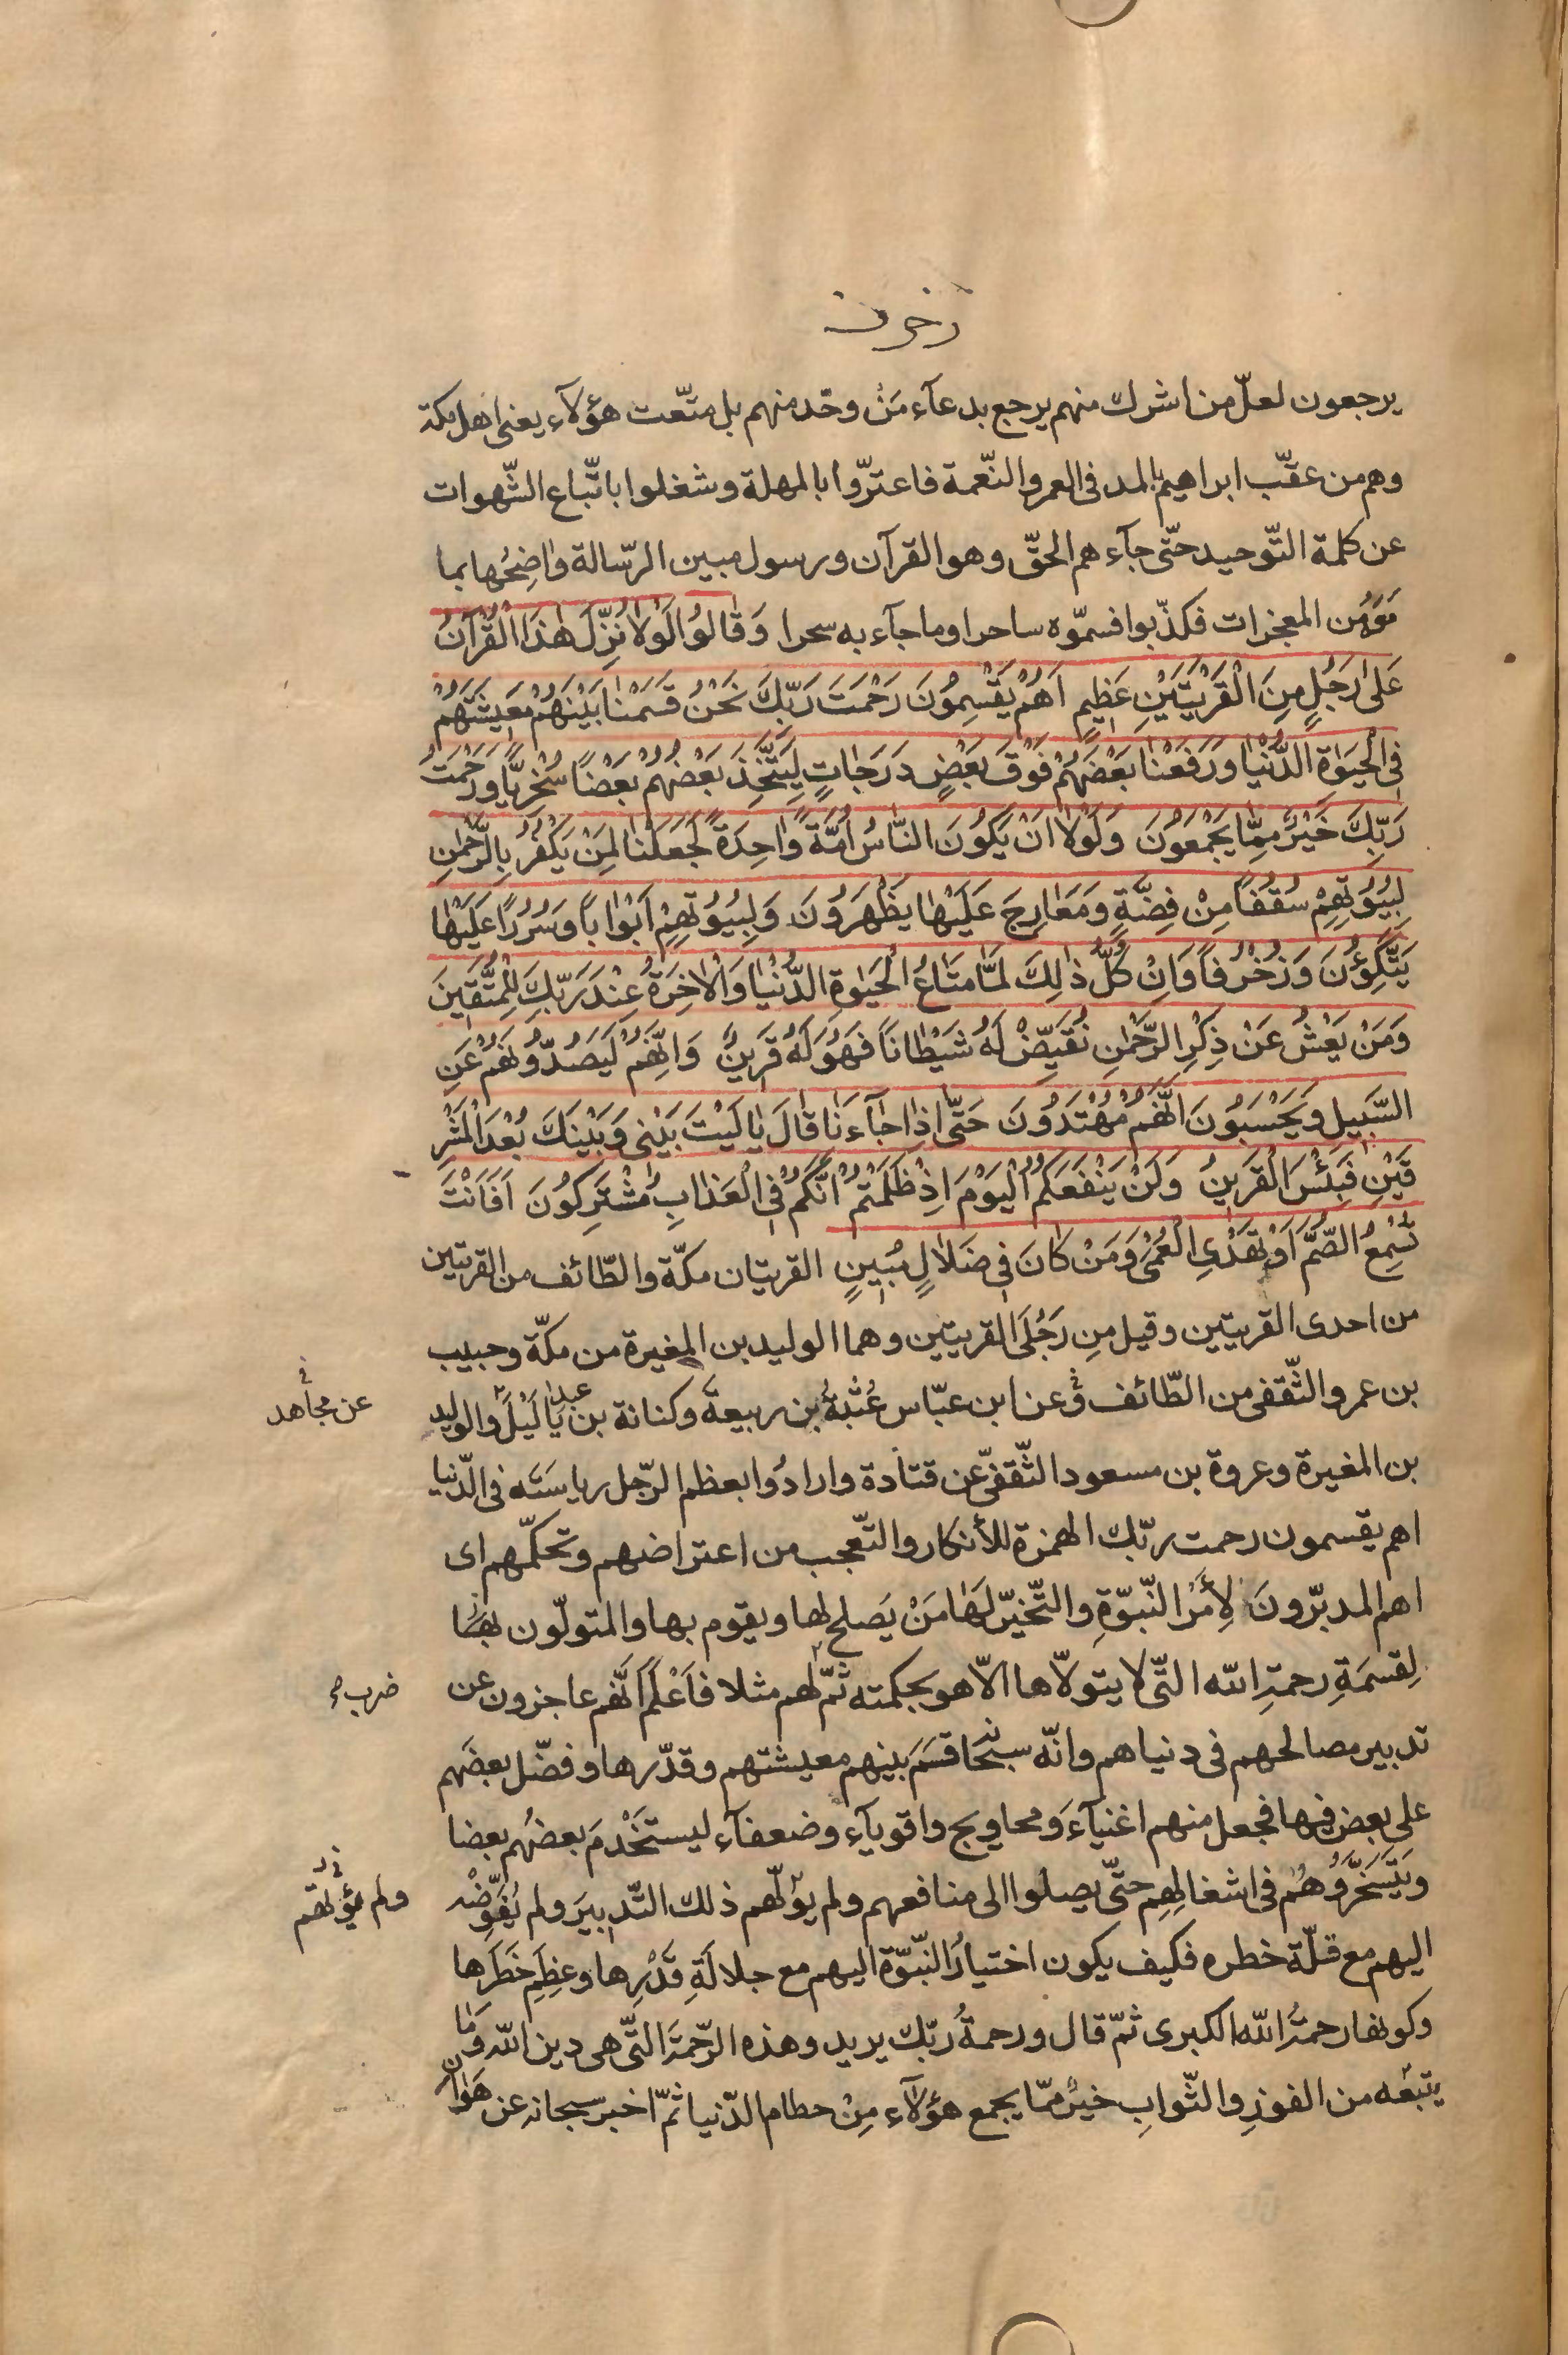 زخرف
يرجعون لعلّ من اشرك منهم يرجع بدعآء مَنْ وحّد منهم بل متّعت هؤلآء يعنى اهل مكة
وهم من عقّب ابراهيم بالمد فى العمر والنّعمة فاعترّوا بالمهلة وشغلوا باتّباع الشّهوات
عن كلمة التّوحيد حتّى جآءهم الحقّ وهو القرآن ورسول مبين الرّسالة واضِحُها بما
من المعجزات فكذّبوا فسمّوه ساحرا وما جآء به سحرا وَقٰالوُا لَوْلاٰ نُزِّلَ هٰذَا الْقُرْآنُ
عَلىٰ رَجُلٍ مِنَ الْقَرْيَتَيْنِ عَظِيمٍ اَهُمْ يَقْسِمُونَ رَحْمَتَ رَبِّكَ نَحْنُ قَسَمْنٰا بَيْنَهُمْ مَعِيشَتَهُمْ
فِى الْحَيٰوةِ الدُّنْيٰا وَرَفَعْنٰا بَعْضَهُمْ فَوْقَ بَعْضٍ دَرَجٰاتٍ لِيَتَّخِذَ بَعْضُهُمْ بَعْضًا سُخْرِيًّا وَرَحْمَتُ
رَبِّكَ خَيْرٌ مِمّٰا يَجْمَعُونَ وَلَوْلاٰ اَنْ يَكُونَ النّٰاسُ اُمَّةً وٰاحِدَةً لَجَعَلْنٰا لِمَنْ يَكْفُرُ بِالرَّحْمٰنِ
لِبُيُوتِهِمْ سُقُفًا مِنْ فِضَّةٍ وَمَعٰارِجَ عَلَيْهٰا يَظْهَرُونَ وَلِبُيُوتِهِمْ اَبْوٰابًا وَسُرُرًا عَلَيْهٰا
يَتَّكِؤُنَ وَزُخْرُفًا وَاِنْ كُلُّ ذٰلِكَ لَمّٰا مَتٰاعُ الْحَيٰوةِ الدُّنْيٰا وَالْاٰخِرَةُ عِنْدَ رَبِّكَ لِلْمُتَّقِينَ
وَمَنْ يَعْشُ عَنْ ذِكْرِ الرَّحْمٰنِ نُقَيِّضْ لَهُ شَيْطٰانًا فَهُوَ لَهُ قَرِينٌ وَاِنَّهُمْ لَيَصُدُّونَهُمْ عَنِ
السَّبِيلِ وَيَحْسَبُونَ اَنَّهُمْ مُهْتَدُونَ حَتّٰى اِذٰا جٰآءَنٰا قٰالَ يٰا لَيْتَ بَيْنِى وَبَيْنَكَ بُعْدَ الْمَشْرِ
قَيْنِ فَبِئْسَ الْقَرِينُ وَلَنْ يَنْفَعَكُمُ الْيَوْمَ اِذْ ظَلَمْتُمْ اَنَّكُمْ فِى الْعَذٰابِ مُشْتَرِكُونَ اَفَاَنْتَ
تُسْمِعُ الصُّمَّ اَوْ تَهْدِى الْعُمْىَ وَمَنْ كٰانَ فِى ضَلاٰلٍ مُبِينٍ القريتان مكّة والطّائف من القريتين
من احدى القريتين وقيل مِن رَجُلَىِ القريتين وهما الوليد بن المغيرة من مكّة وحبيب
بن عمرو الثّقفى من الطّائف وعن ابن عبّاس عُتْبةُ بن ربيعةَ وكنانة بن عبد يٰا لَيْلَ والوليد
عن مجاهد
بن المغيرة وعروة بن مسعود الثّقفىّ عن قتادة وارادُوا بعظم الرّجل رياسَتَه فى الدّنيا
اهم يقسمون رحمت ربّك الهمزة للأنكار والتّعجب من اعتراضهم وتحكّمهم اى
اهم المدبّرونَ لِأَمْرِ النّبوّةِ والتّخيّر لهٰا مَنْ يَصلح لها ويقوم بها والمتولّون
لِقسمَةِ رحمةِ الله التّى لا يتولّاها الّا هو بحكمته ثمّ لهم مثلا فاَعْلَمَ انّهم عاجزون عن
ضرب
تدبير مصالحهم فى دنياهم وانّه سبحانه قسَمَ بينهم معيشتهم وقدّرها وفضّل بعضَهم
على بعض فيها فجعل منهم اغنيآءَ ومحاويج واقويآء وضعفآء ليستَخْدِمَ بعضُهم بعضا
ويَتَسَخَّرُوهُم فى اشغالِهِم حتّى يصلوا الى منافعهم ولم يولّهم ذلك التّدبيرَ ولم يُفَوِّضْه
ولم يؤلهم
اليهم مع قلّة خطره فكيف يكون اختيارُ النّبوّة اليهم مع جلالَةِ قَدْرِها وعِظَمِ خَطَرِها
وكونها رحمةَ الله الكبرى ثمّ قال ورحمةُ ربّك يريد وهذه الرّحمةَ التّى هى دين الله وَمٰا
يتبعُه من الفوزِ والثّوابِ خيرٌ ممّا يجمع هؤلآء مِنْ حطام الدّنيا ثمّ اخبر سبحانه عن هَوٰان